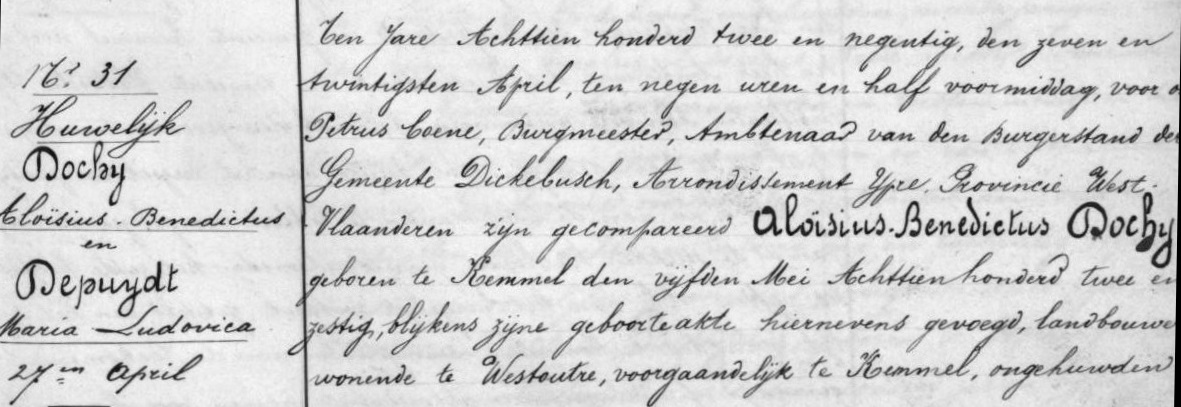 Nr 31
Huwelijk
Dochy
Aloïsius-Benedictus
en
Depuydt
Maria-Ludovica
27en April
Ten Jare Achttien honderd twee en negentig, den zeven en
twintigsten April, ten negen uren en half voormiddag, voor
Petrus Coene, Burgmeester, Ambtenaar van den Burgerstand der
Gemeente Dickebusch, Arrondissement Ypre. Provincie West-
Vlaanderen zijn gecompareerd Aloïsius-Benedictus Dochy
geboren te Kemmel den vijfden Mei Achttien honderd twee en
zestig, blijkens zijne geboorteakte hiernevens gevoegd, landbouwe
wonende te Westoutre, voorgaandelijk te Kemmel, ongehuwden